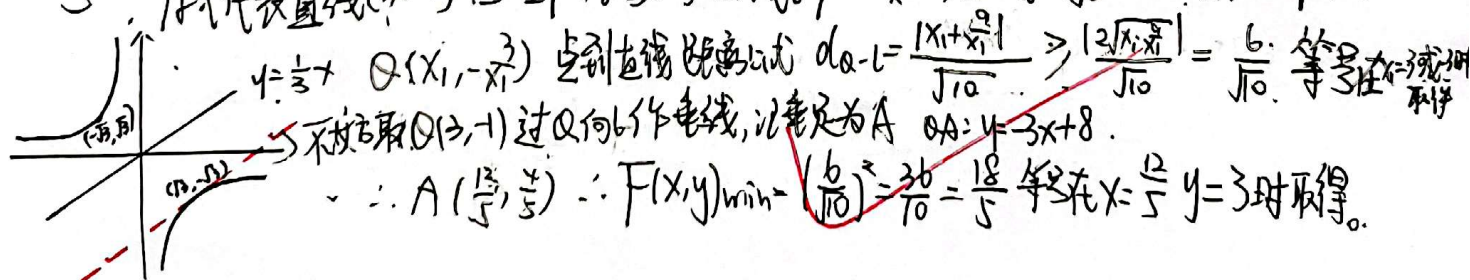 y=\frac{1}{3}x Q(x₁,-\frac{3}{x₁}) 点到直线距离公式 d_{Q-l}=\frac{|x₁+\frac{9}{x₁}|}{\sqrt{10}} ≥ \frac{|2\sqrt{x₁·\frac{9}{x₁}}|}{\sqrt{10}} = \frac{6}{\sqrt{10}}. 等号在x₁=3或-3时取得
(-√3,√3) 不妨取Q(3,-1)过Q向l作垂线,记垂足为A QA:y=-3x+8.
(√3,-√3) ∴A(\frac{12}{5},\frac{4}{5}) ∴F(x,y)min=(\frac{6}{\sqrt{10}})²=\frac{36}{10}=\frac{18}{5} 等号在x=\frac{12}{5} y=3时取得。